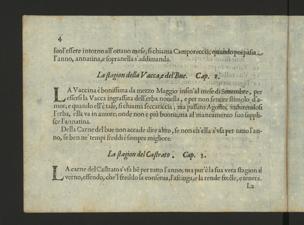 4
suol'essere intorno all'ottauo mese, si chiama Camporeccio, quando poi passa
l'anno, annatina, e sopranella s'addimanda.
La stagion della Vacca, e del Bue. Cap. 2.
LA Vaccina è bonissima da mezzo Maggio insin'al mese di Settembre, per
essersi la Vacca ingrassata dell'erba nouella, e per non sentire stimolo, d'a-
more, e quando ell'è tale, si chiama; ma passato Agosto,
l'erba, ella và in amore, onde non è più buona, ma al mancamento suo suppli-
sce l'annatina.
Della Carne del bue non accade dire altro, se non ch'ella s'vsa per tutto l'an-
no, se ben ne' tempi freddi è sempre migliore.
La stagion del Castrato. Cap. 3.
LA carne del Castrato s'vsa bè per tutto l'anno, ma pur'è la sua vera stagion il
verno, essendo, che'l freddo la conserua, l'asciuga, e la rende frolle, e tenera.
La